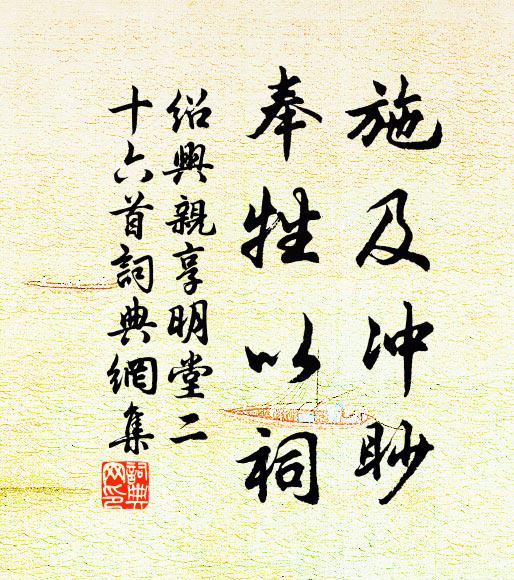 施及冲眇
奉牲以祠
绍興親享明堂二
十六首詞典網集
詞典网印